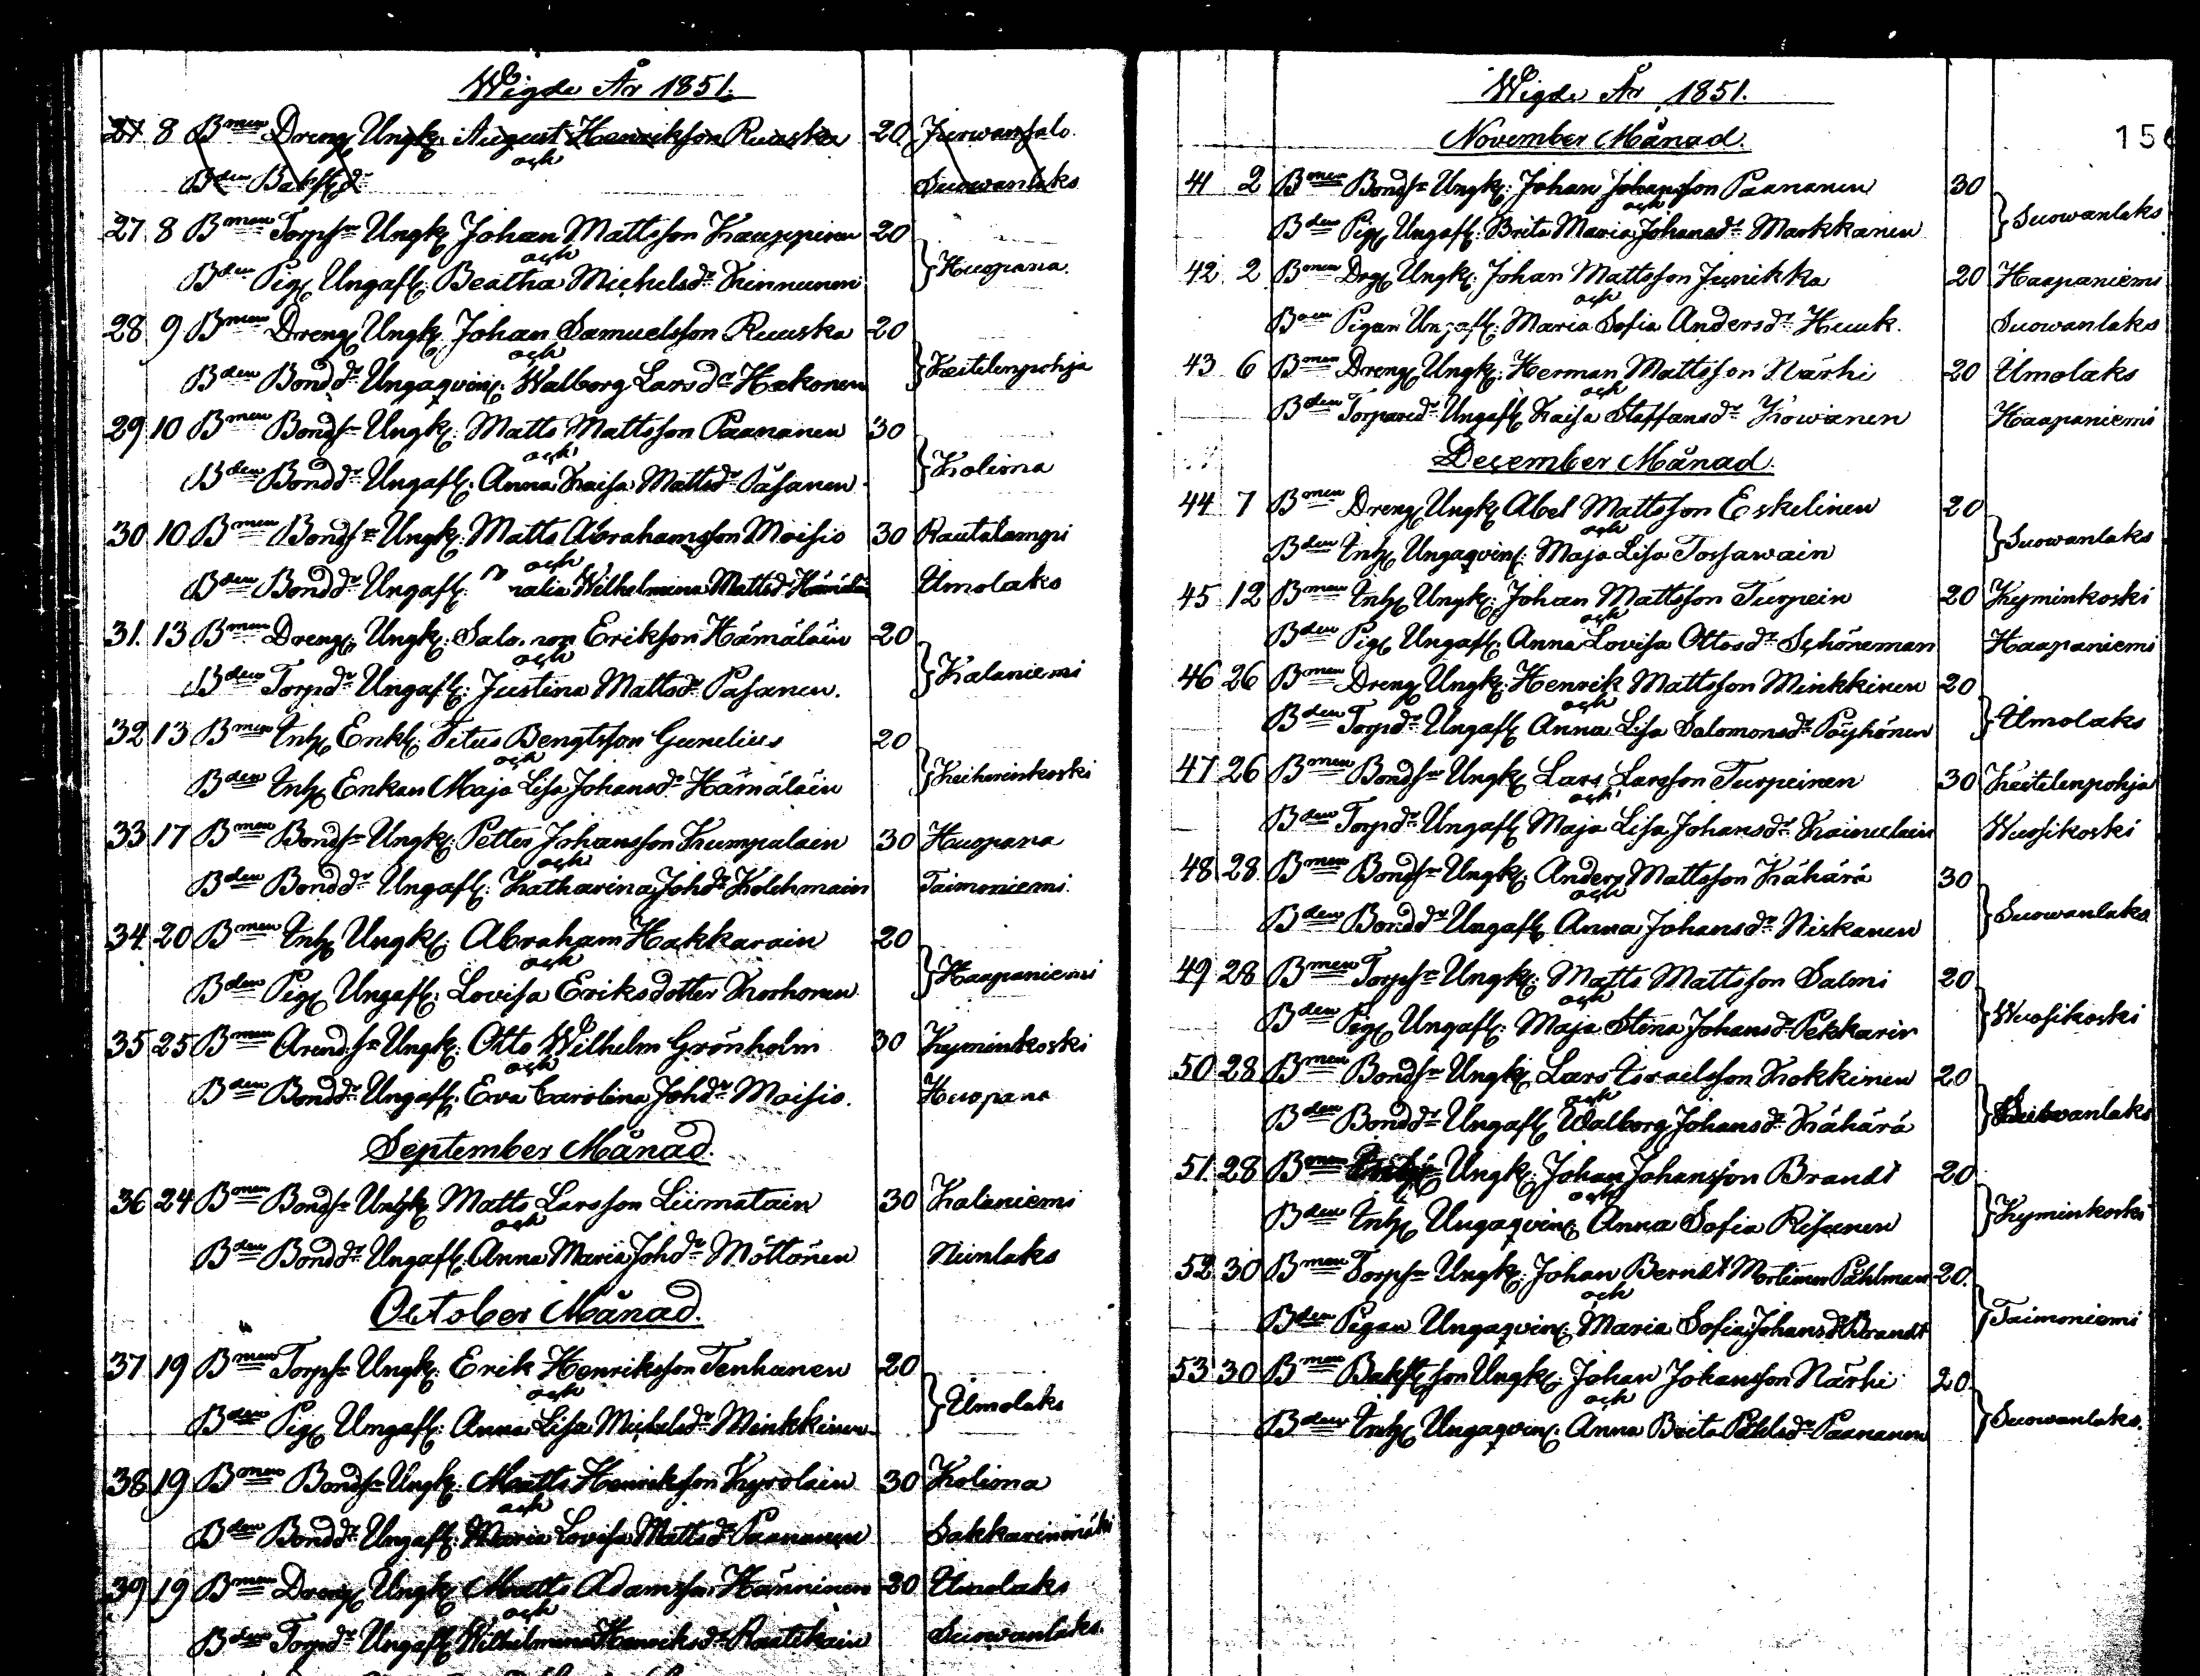 Wigde År 1851.
27 8 Bmen Dreng Ungk. August Henriksson Ruuska 20 Jurwansalo
och
Bden Bakst.d:r Suowanlaks
27 8 Bmen Torps:n Ungk. Johan Mattsson Kauppinen 20
och
Bden Pig. Ungafl. Beatha Michelsd:r Kinnunen } Huopana.
28 9 Bmen Dreng Ungk. Johan Samuelsson Ruuska 20
och
Bden Bondd:r Ungaqvin. Walborg Larsd:r Hakonen } Keitelenpohja
29 10 Bmen Bonds:n Ungk. Matts Mattsson Paananen 30
och
Bden Bondd:r Ungafl. Anna Kaisa Mattsd:r Pasanen } Kolima
30 10 Bmen Bonds:n Ungk. Matts Abrahamsson Moisio 30 Rautalampi
och
Bden Bondd:r Ungafl. Wilhelmina Mattsd:r Umolaks
31. 13 Bmen Dreng. Ungk. Salomon Eriksson Hämäläin 20
och
Bden Torpd:r Ungafl. Justina Mattsd:r Pasanen. } Kalaniemi
32 13 Bmen Inh. Enkl. Titus Bengtsson Gunelius 20
och
Bden Inh. Enkan Maja Lisa Johansd:r Hämäläin } Keiherinkoski
33 17 Bmen Bonds:n Ungk. Petter Johansson Kumpulain 30 Huopana
och
Bden Bondd:r Ungafl. Katharina Johd:r Kolehmain Taimoniemi.
34. 20 Bmen Inh. Ungk. Abraham Hakkarain 20
och
Bden Pig. Ungafl. Lovisa Eriksdotter Korhonen } Haapaniemi
35 25 Bmen Arend.s:n Ungk. Otto Wilhelm Grönholm 30 Kyminkoski
och
Bden Bondd:r Ungafl. Eva Carolina Johd:r Moisio. Huopana
September Månad.
36 24 Bmen Bonds:n Ungk. Matts Larsson Liimatain 30 Kalaniemi
och
Bden Bondd:r Ungafl. Anna Maria Johd:r Möttönen Niinlaks
October Månad.
37 19 Bmen Torps:n Ungk. Erik Henriksson Tenhanen 20
och
Bden Pig. Ungafl. Anna Lisa Michelsd:r Minkkinen } Umolaks
38. 19 Bmen Bonds:n Ungk. Matts Henriksson Kyrolain 30 Kolima
och
Bden Bondd:r Ungafl. Maria Lovisa Mattsd:r Paananen Sakkarinmäki
39 19 Bmen Dreng Ungk. Matts Adamsson Hänninen 20 Umolaks
och
Bden Torpd:r Ungafl. Wilhelmina Henriksd:r Rautikain Suowanlaks.
Wigde År 1851.
November Månad.
156
41 2 Bmen Bonds:n Ungk. Johan Johansson Paananen 30
och
Bden Pig. Ungafl. Brita Maria Johansd:r Markkanen } Suowanlaks
42 2 Bmen Drg. Ungk. Johan Mattsson Junikka 20 Haapaniemi
och
Bden Pigan Ungafl. Maria Sofia Andersd:r Huuk. Suowanlaks
43 6 Bmen Dreng. Ungk. Herman Mattsson Närhi 20 Umolaks
och
Bden Torpared:r Ungafl. Kaisa Staffansd:r Kowanen Haapaniemi
December Månad.
44 7 Bmen Dreng. Ungk. Abel Mattsson Eskelinen 20
och
Bden Inh. Ungaqvin. Maja Lisa Tossawain } Suowanlaks
45 12 Bmen Inh. Ungk. Johan Mattsson Turpein 20 Kyminkoski
och
Bden Pig. Ungafl. Anna Lovisa Ottosd:r Schöneman Haapaniemi
46 26 Bmen Dreng Ungk. Henrik Mattsson Minkkinen 20
och
Bden Torpd:r Ungafl. Anna Lisa Salomonsd:r Pöyhönen } Umolaks
47 26 Bmen Bonds:n Ungk. Lars Larsson Turpeinen 30 Keitelenpohja
och
Bden Torpd:r Ungafl. Maja Lisa Johansd:r Kainulain Wuosikoski
48 28 Bmen Bonds:n Ungk. Anders Mattsson Kähärä 30
och
Bden Bondd:r Ungafl. Anna Johansd:r Niskanen } Suowanlaks.
49 28 Bmen Torps:n Ungk. Matts Mattsson Salmi 20
och
Bden Pig. Ungafl. Maja Stina Johansd:r Pekkarin } Wuosikoski
50 28 Bmen Bonds:n Ungk. Lars Israelsson Kokkinen 20
och
Bden Bondd:r Ungafl. Walborg Johansd:r Kähärä } Suowanlaks
51. 28 Bmen Ungk. Johan Johansson Brandt 20
och
Bden Inh. Ungaqvin. Anna Sofia Risanen } Kyminkoski
52 30 Bmen Torps:n Ungk. Johan Berndt Mortimer Påhlman 20.
och
Bden Pigan Ungaqvin. Maria Sofia Johansd:r Brandt } Taimoniemi
53 30 Bmen Bakst.son Ungk. Johan Johansson Närhi 20
och
Bden Inh. Ungaqvin. Anna Brita Påhlsd:r Paananen } Suowanlaks.